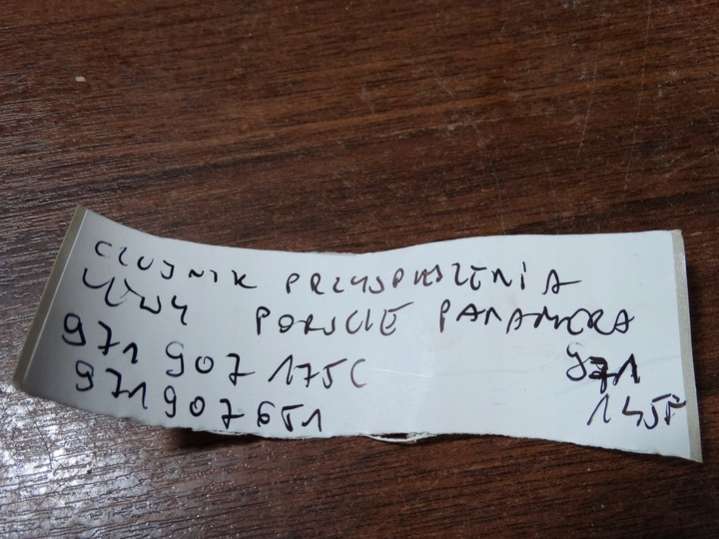 CZUJNIK PRZYSPIESZENIA
LEWY PORSCHE PANAMERA
971 907 175C 971
971907651 1455